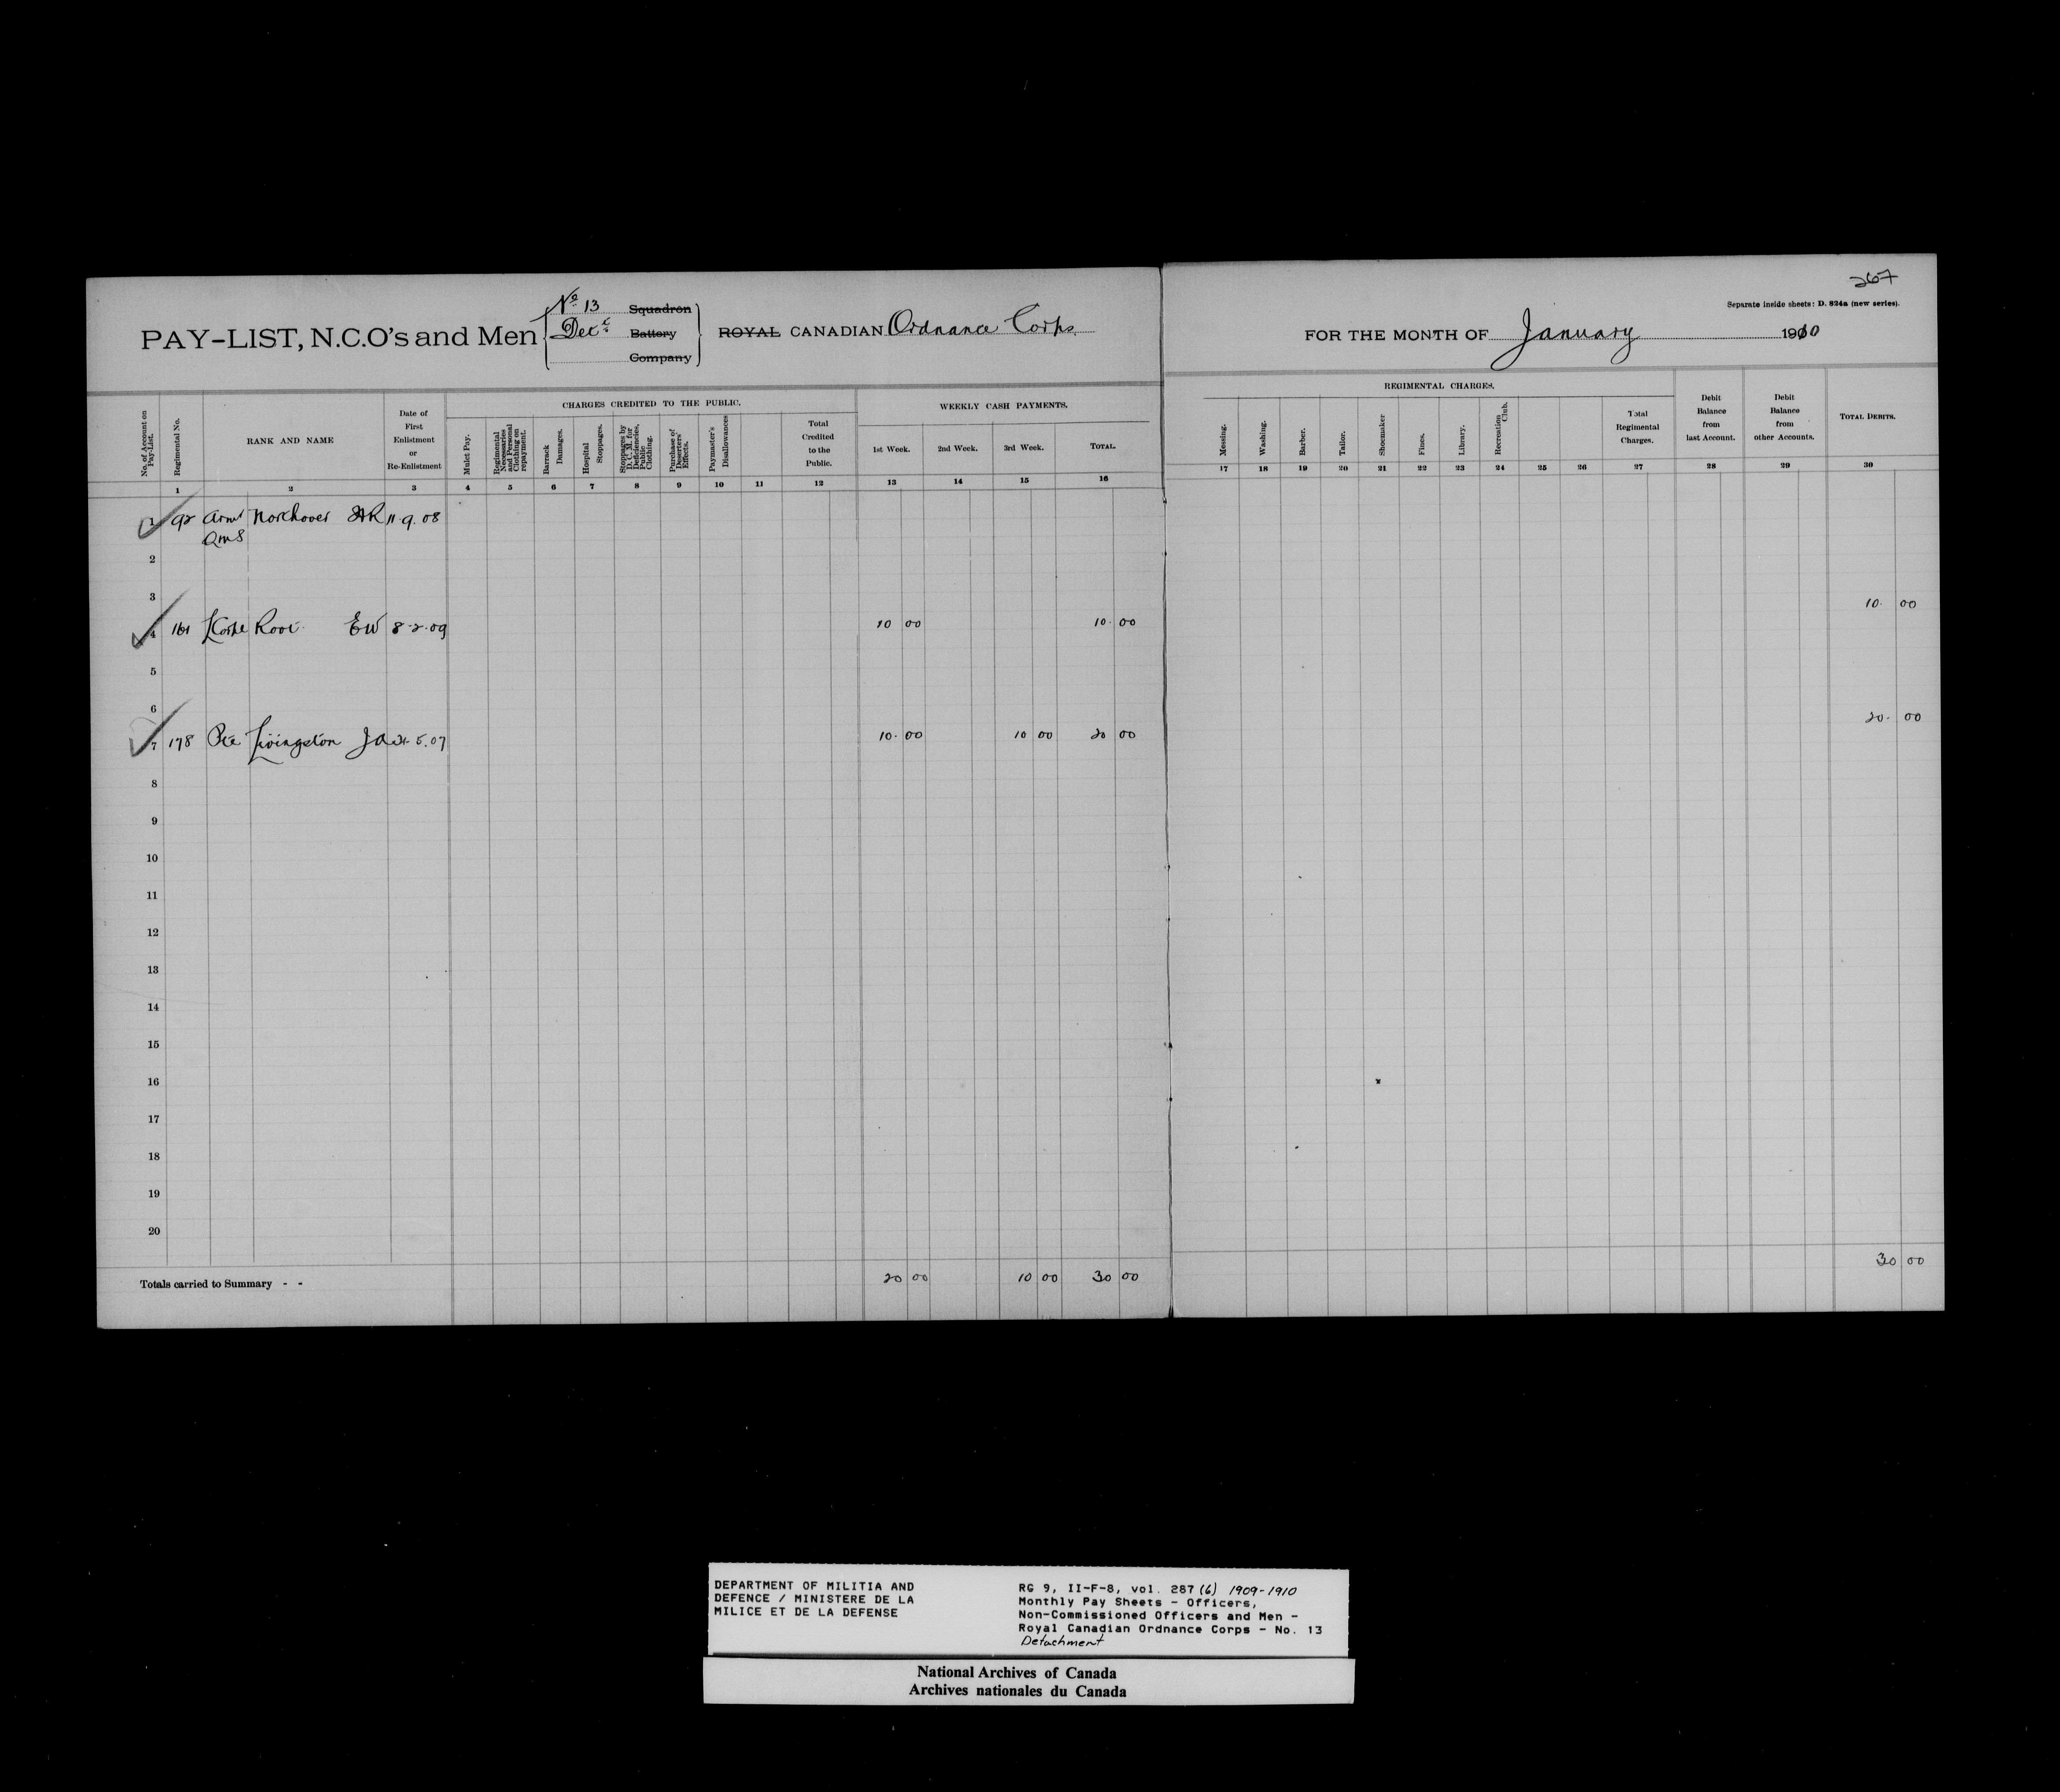 267
Separate inside sheets: D. 824a (new series).
PAY-LIST, N.C.O's and Men
No 13 Squadron
Det Battery
Company
ROYAL CANADIAN Ordnance Corps
FOR THE MONTH OF January 1910
No. of Account on Pay-List.
Regimental No.
RANK AND NAME
Date of First Enlistment or Re-Enlistment
CHARGES CREDITED TO THE PUBLIC.
Mulct Pay.
Regimental Necessaries and Personal Clothing on repayment.
Barrack Damages.
Hospital Stoppages.
Stoppages by D. C. M. for Deficiencies, Public Clothing.
Purchase of Deserters' Effects.
Paymaster's Disallowances
Total Credited to the Public.
WEEKLY CASH PAYMENTS.
1st Week. 2nd Week. 3rd Week. TOTAL.
REGIMENTAL CHARGES.
Messing.
Washing.
Barber.
Tailor.
Shoemaker
Fines.
Library.
Recreation Club.
Total Regimental Charges.
Debit Balance from last Account.
Debit Balance from other Accounts.
TOTAL DEBITS.
1 2 3 4 5 6 7 8 9 10 11 12 13 14 15 16 17 18 19 20 21 22 23 24 25 26 27 28 29 30
1 92 Armt Northover AR 11.9.08
QMS
2
3
4 161 Corpl EW 8-2-09 10 00 10. 00 10. 00
5
6
7 178 Pte Livingston JA 21.5.07 10. 00 10 00 20 00 20. 00
8
9
10
11
12
13
14
15
16
17
18
19
20
Totals carried to Summary - - 20 00 10 00 30 00 30 00
DEPARTMENT OF MILITIA AND
DEFENCE / MINISTERE DE LA
MILICE ET DE LA DEFENSE
RG 9, II-F-8, vol. 287 (6) 1909-1910
Monthly Pay Sheets - Officers,
Non-Commissioned Officers and Men -
Royal Canadian Ordnance Corps - No. 13
Detachment
National Archives of Canada
Archives nationales du Canada